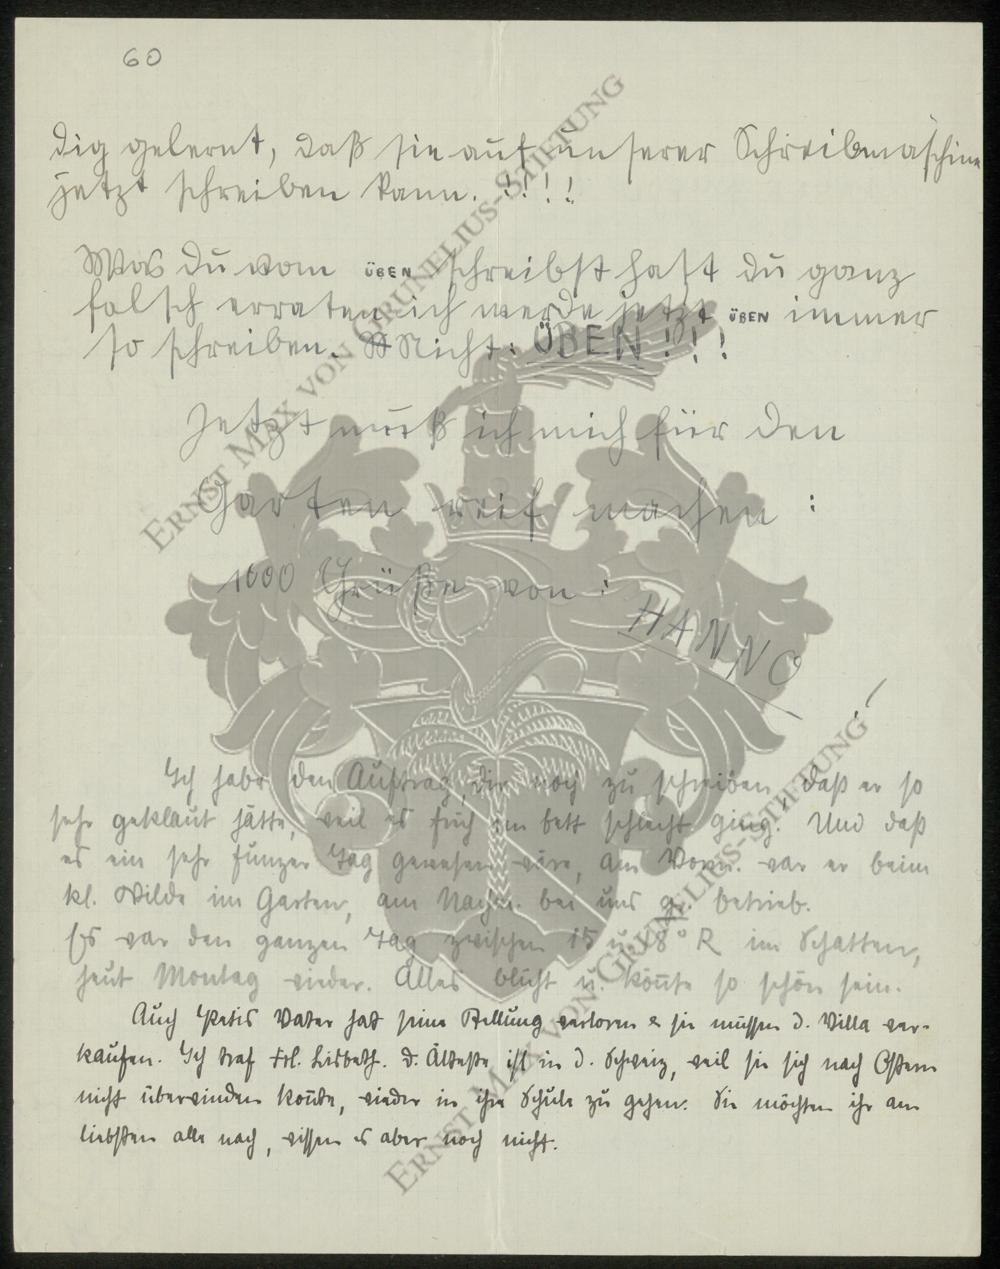 60
dig gelernt, daß sie auf unserer Schreibmaschine
jetzt schreiben kann. !!!!
Was du vom ÜBEN schreibst hast du ganz
falsch erraten ich werde jetzt ÜBEN immer
so schreiben. Nicht: ÜBEN!!!
Jetzt muß ich mich für den
Garten reif machen:
1000 Grüße von:
HANNO!
Ich habe den Auftrag, dir noch zu schreiben, daß er so
sehr geklaut hätte, weil es Euch im bett schlecht ging. Und daß
es ein sehr Tag gewesen wäre, am Vorm. war er beim
kl. Wilde im Garten, am Nachm. bei uns gr. betrieb.
Es war den ganzen Tag zwischen 15 u. 18° R im Schatten,
heut Montag wieder. Alles blüht u. könnte so schön sein.
Auch Vater hat seine Stellung verloren & sie müssen d. Villa ver-
kaufen. Ich traf Frl. Lisbeth. D. Älteste ist in d. Schweiz, weil sie sich nach Ostern
nicht überwinden konnte, wieder in ihre Schule zu gehen. Sie möchten ihr am
liebsten alle nach, wissen es aber noch nicht.
ERNST MAX VON GRUNELIUS-STIFTUNG
ERNST MAX VON GRUNELIUS-STIFTUNG